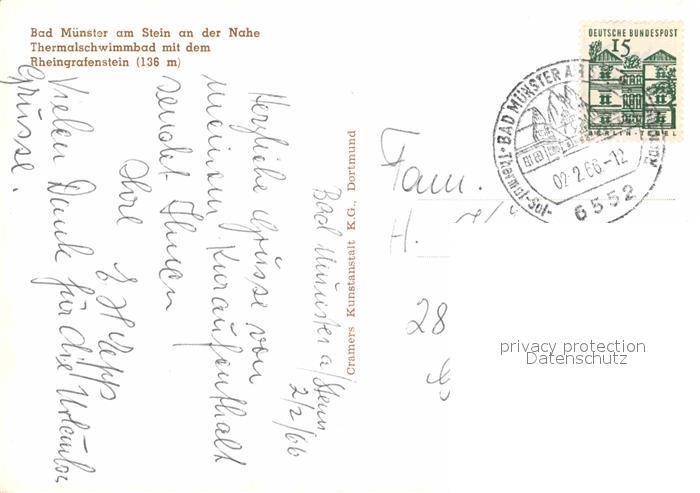 Bad Münster am Stein an der Nahe
Thermalschwimmbad mit dem
Rheingrafenstein (136 m)
Bad Münster a/Stein
2/2/66
Herzliche Grüsse von
meinem Kuraufenthalt
sendet Ihnen
Ihre
Vielen Dank für die
Grüsse.
Cramers Kunstanstalt K.G., Dortmund
DEUTSCHE BUNDESPOST
15
BERLIN-TEGEL
BAD MÜNSTER A.
Thermal-Sol-
02.2.66.-12
6552
Fam.
H.
28
privacy protection
Datenschutz